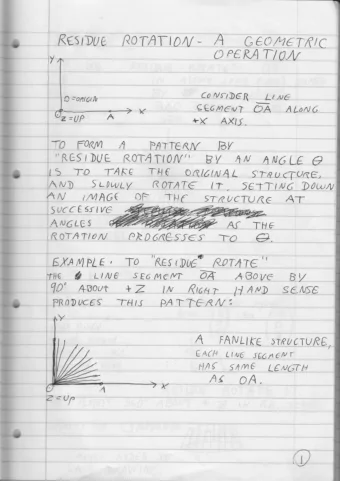 RESIDUE ROTATION - A GEOMETRIC
OPERATION
Y
O = ORIGIN
O
A
X
Z = UP
CONSIDER LINE
SEGMENT OA ALONG
+X AXIS.
TO FORM A PATTERN BY
"RESIDUE ROTATION" BY AN ANGLE θ
IS TO TAKE THE ORIGINAL STRUCTURE,
AND SLOWLY ROTATE IT, SETTING DOWN
AN IMAGE OF THE STRUCTURE AT
SUCCESSIVE
ANGLES AS THE
ROTATION PROGRESSES TO θ.
EXAMPLE. TO "RESIDUE ROTATE"
THE LINE SEGMENT OA ABOVE BY
90° ABOUT +Z IN RIGHT HAND SENSE
PRODUCES THIS PATTERN:
Y
O
A
X
Z = UP
A FANLIKE STRUCTURE,
EACH LINE SEGMENT
HAS SAME LENGTH
AS OA.
1